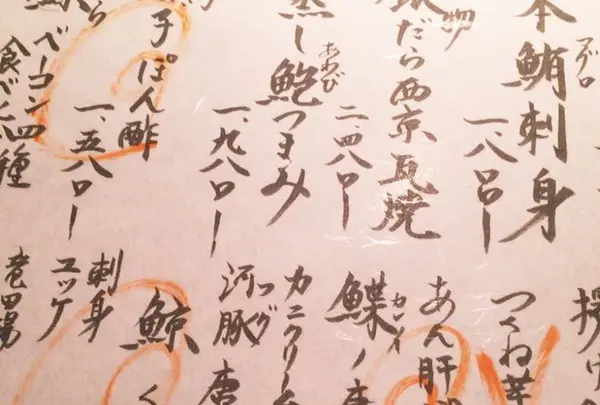 マグロ
本鮪刺身
一、八〇〇ー
物
だら西京瓦焼
二、四八〇ー
あわび
蒸し鮑つまみ
一、九八〇ー
子ぽん酢
一、五八〇ー
ら
ベーコン四種
食べ
揚
つくね芋
あん肝
カレイ
ノ唐
カニクリーム
フグ
河豚唐
鯨
く
刺身
ユッケ
竜田揚